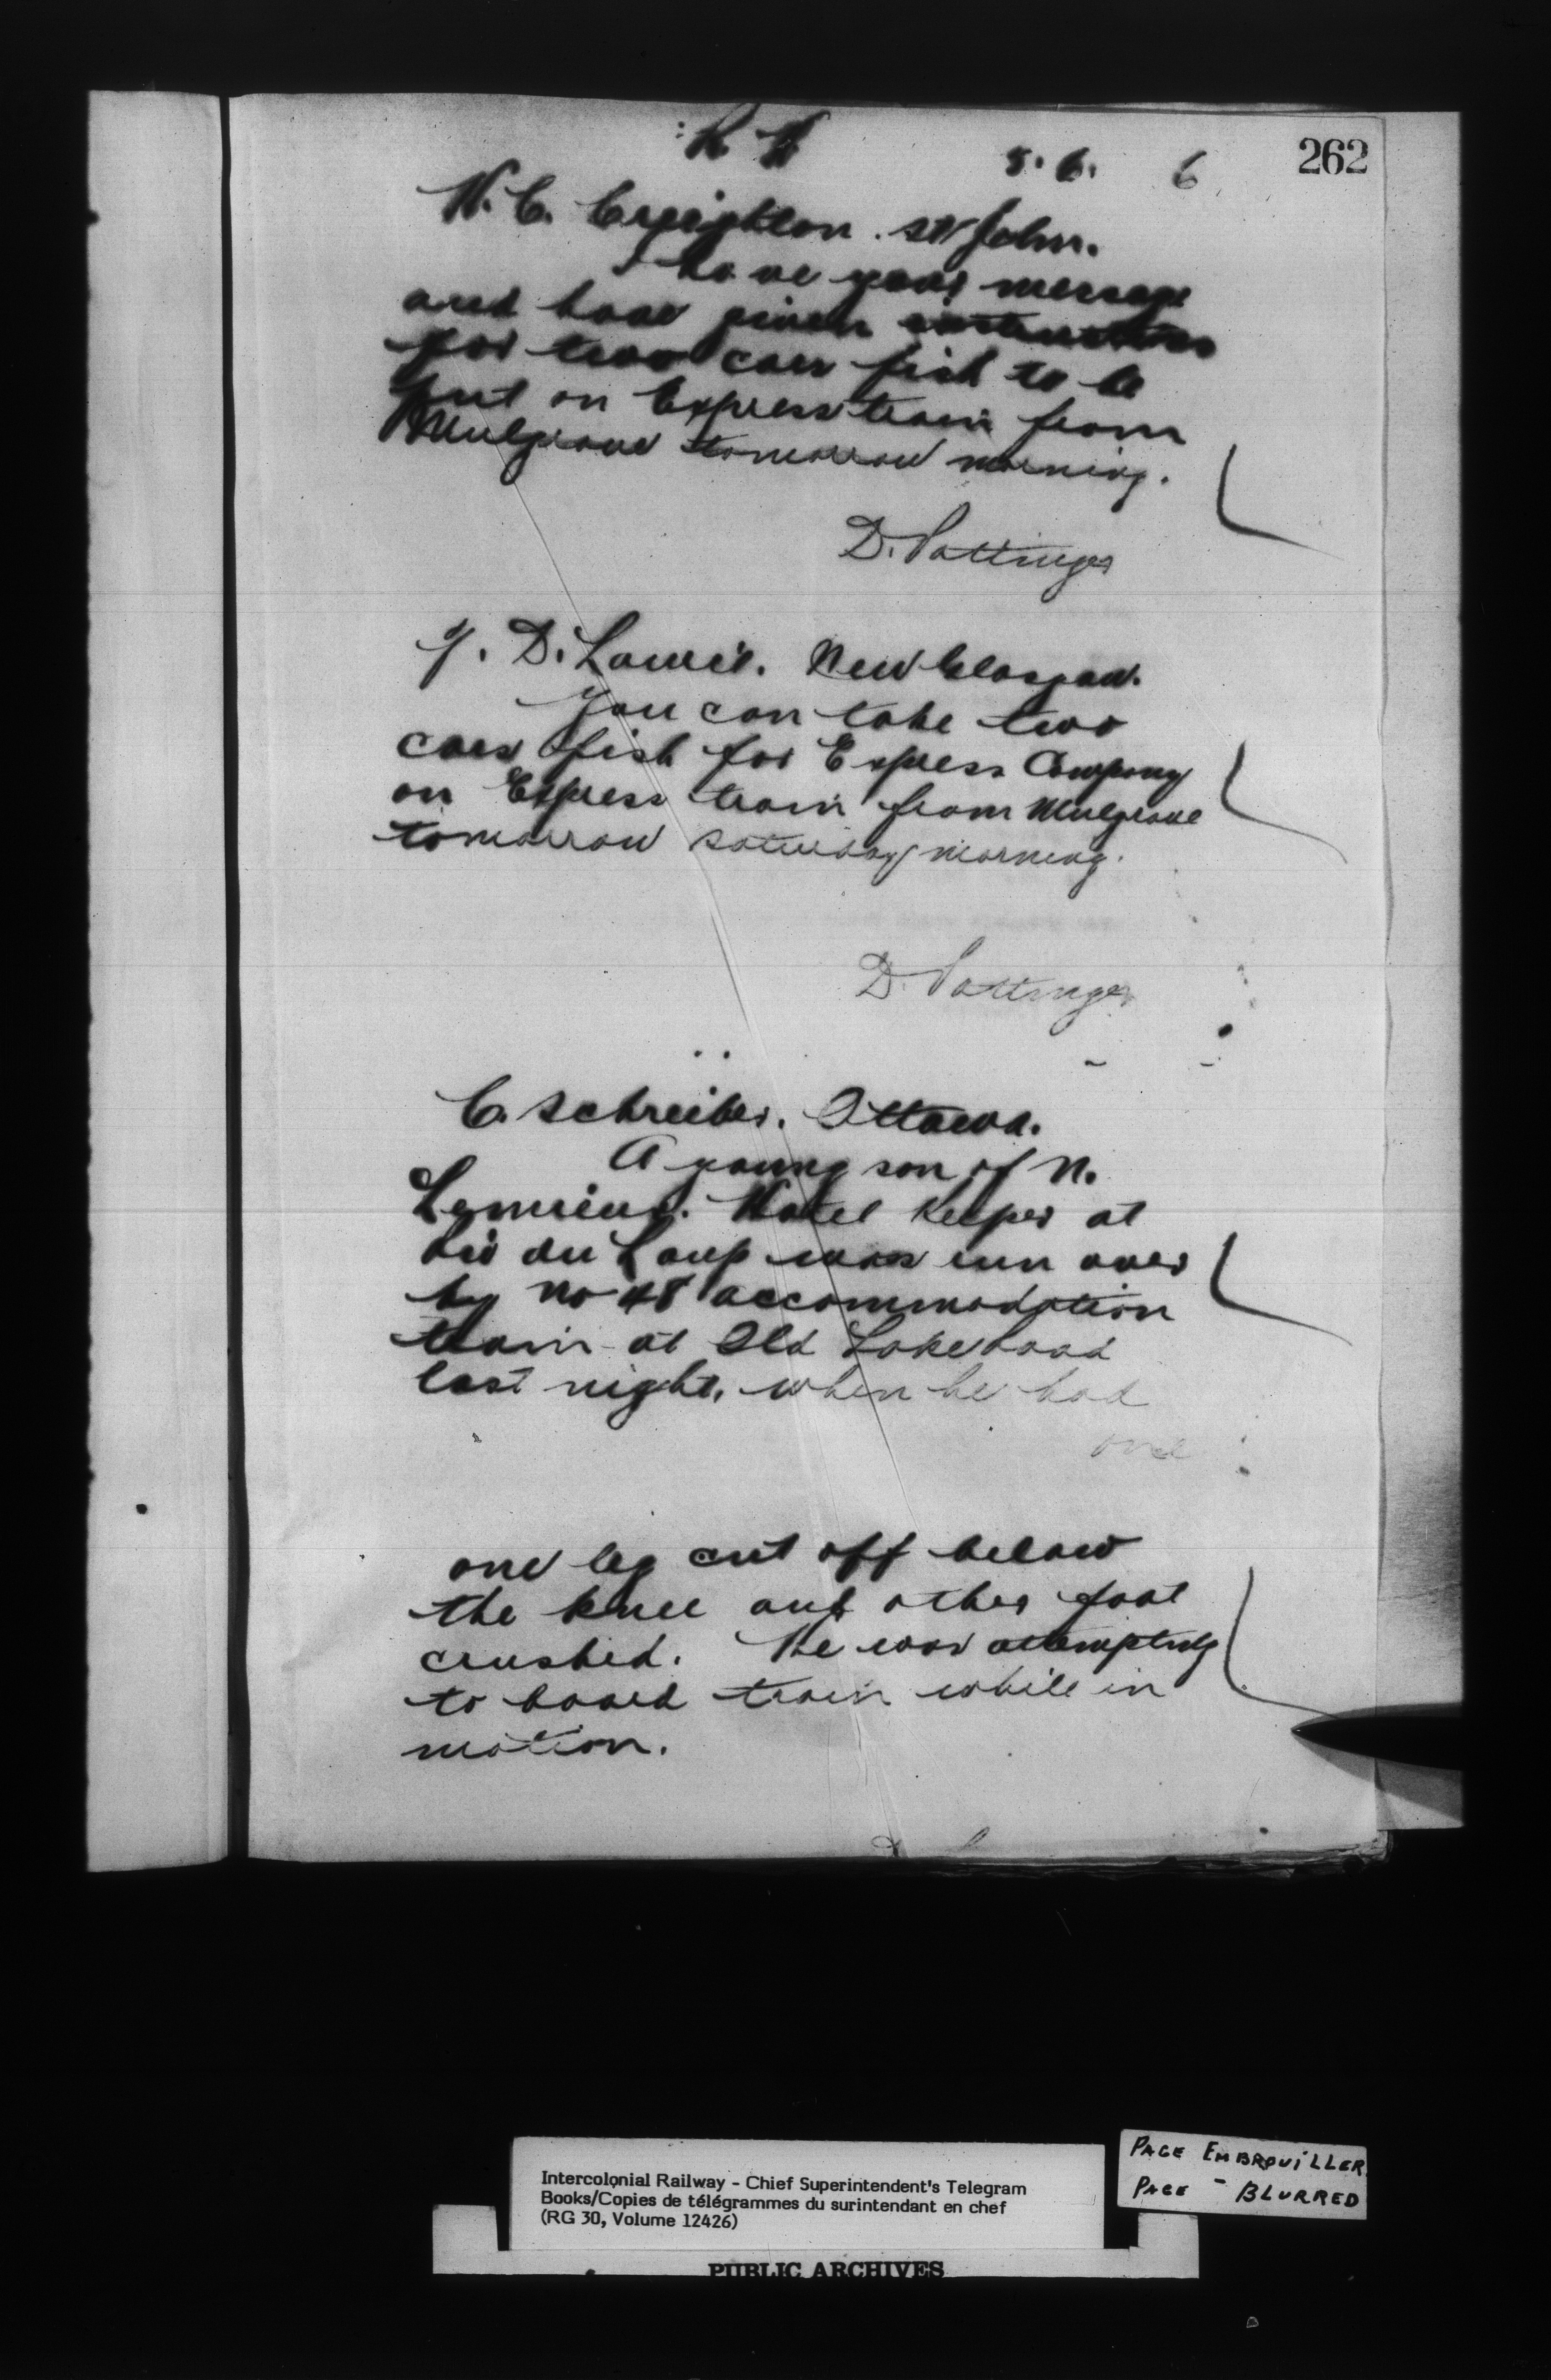 262
5. 6. 6
H. C. Creighton. St John.
I have your message
and have given instructions
for two cars fish to be
put on Express train from
Mulgrave tomorrow morning.
D. Pottinger
Y. D. Laurie. New Glasgow.
You can take two
cars fish for Express Company
on Express train from Mulgrave
tomorrow Saturday morning.
D. Pottinger
C. Schreiber. Ottawa.
A young son of N.
Lemieux. Hotel Keeper at
Riv du Loup was run over
by No 48 accommodation
train at Old Lake Road
last night, when he had
one
one leg cut off below
the knee and other foot
crushed. He was attempting
to board train while in
motion.
Intercolonial Railway - Chief Superintendent's Telegram
Books/Copies de télégrammes du surintendant en chef
(RG 30, Volume 12426)
PAGE EMBROUILLER
PAGE - BLURRED
PUBLIC ARCHIVES